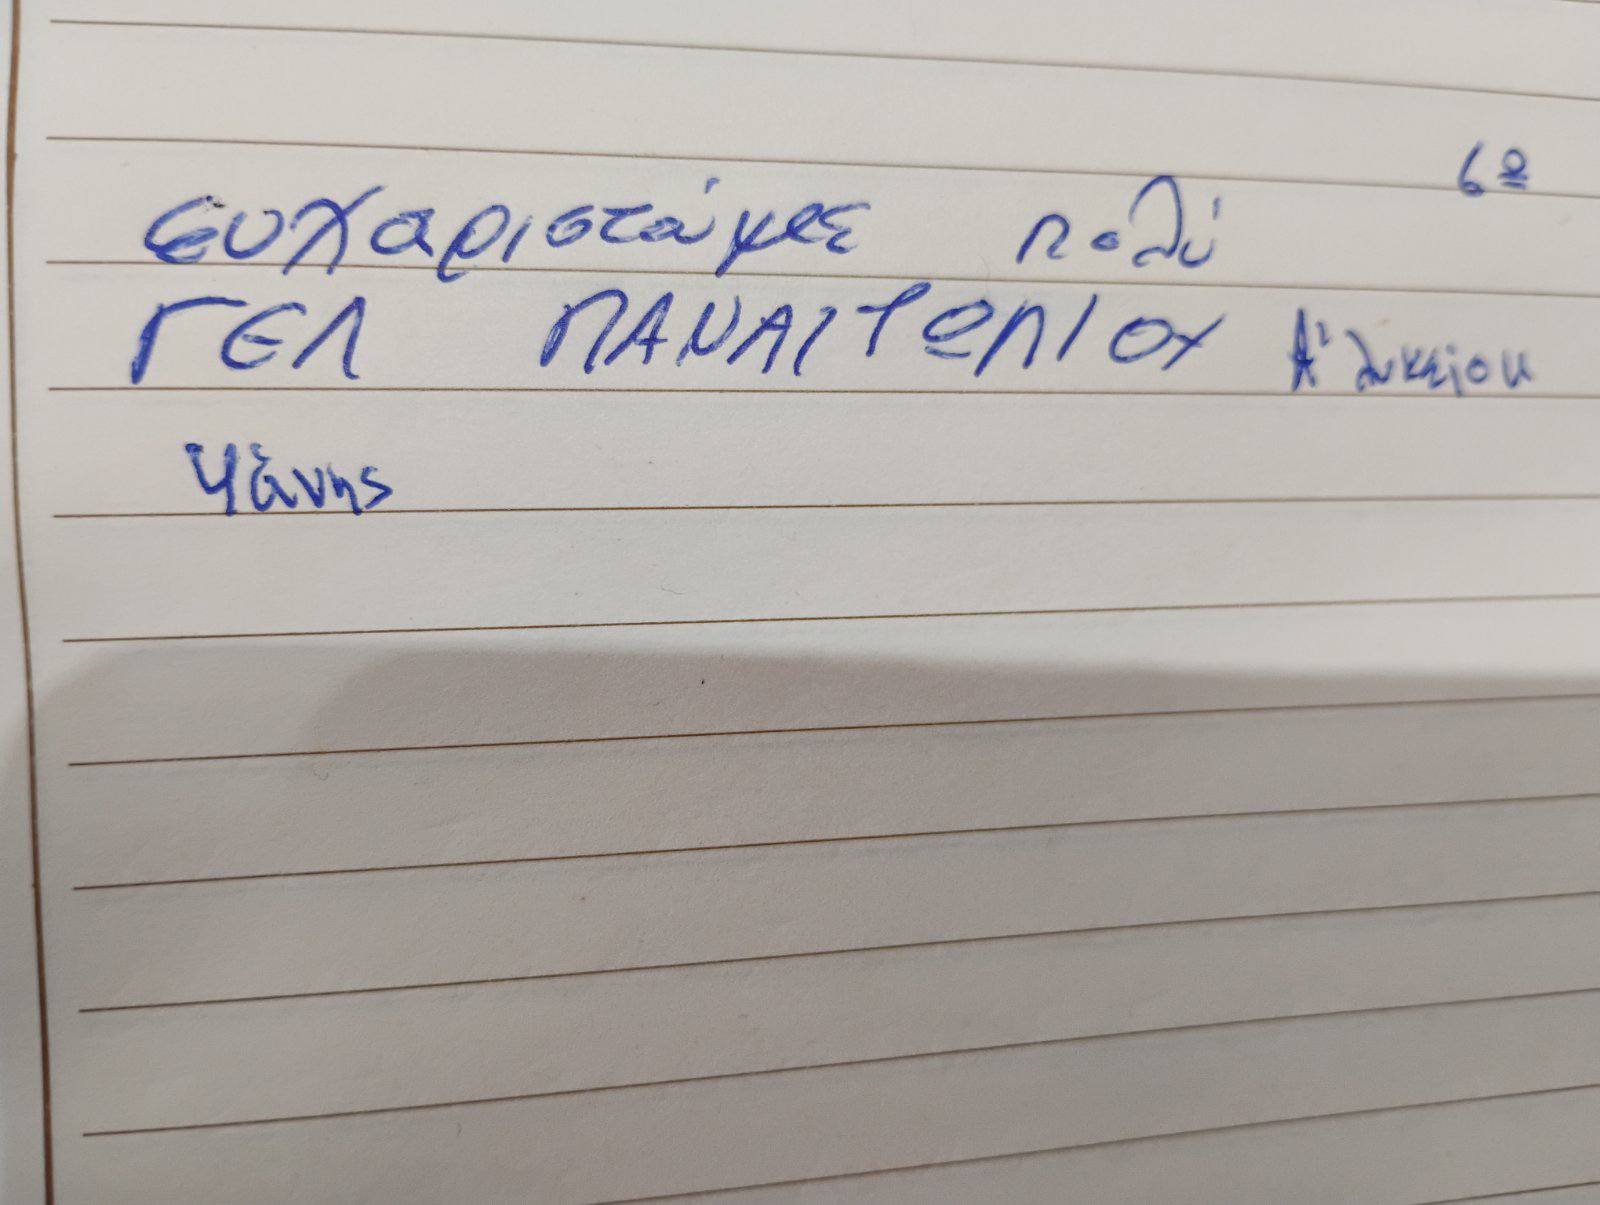 6º
ευχαριστάμε πολύ
ΓΕΛ ΠΑΝΑΙΤΩΛΙΟΥ Α' λυκείου
Γιάνης